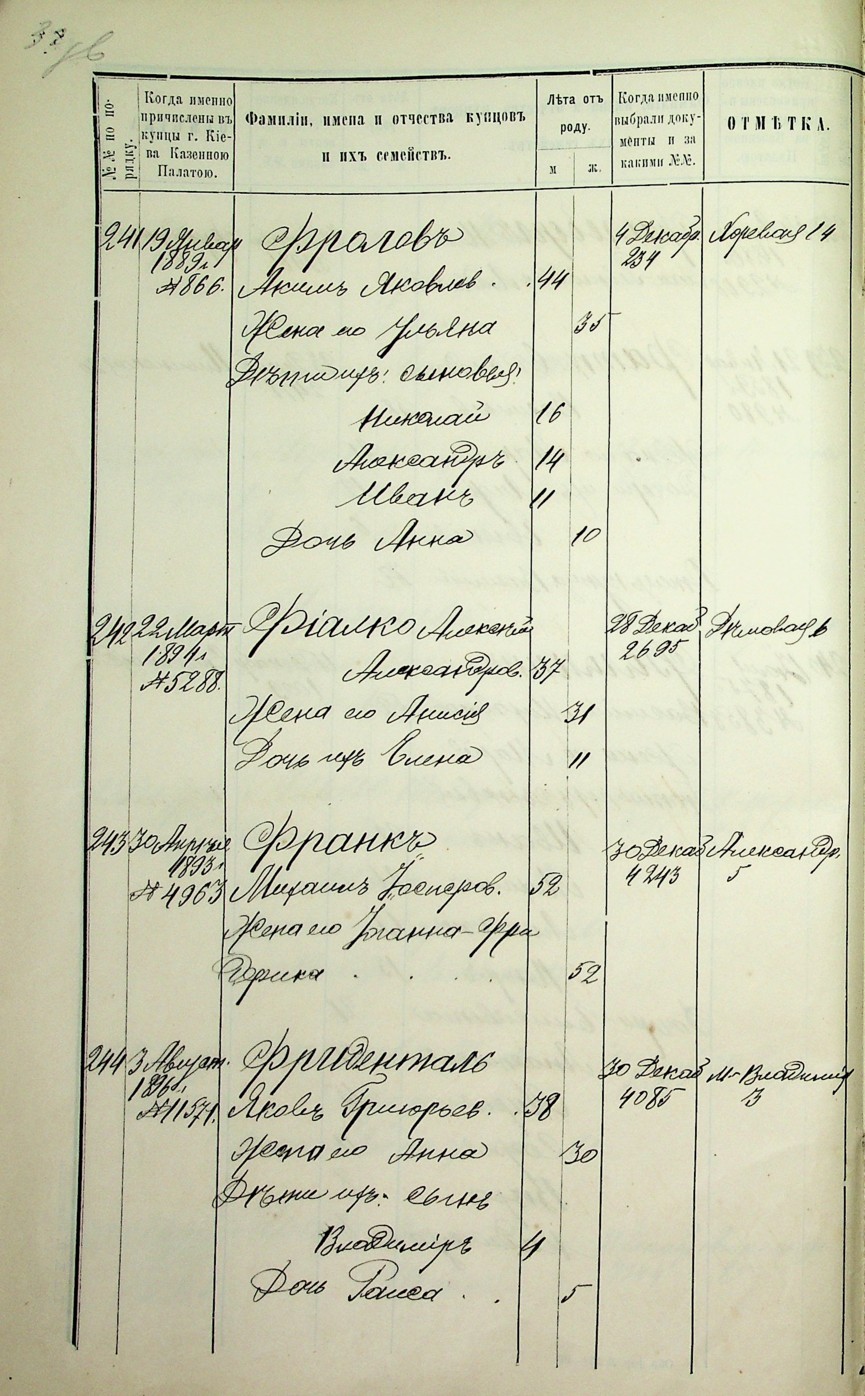 №№ по по-
рядку.
Когда именно
причислены въ
купцы г. Кіе-
ва Казенною
Палатою.
Фамиліи, имена и отчества купцовъ
и ихъ семействъ.
Лѣта отъ
роду.
м
ж.
Когда именно
выбрали доку-
менты и за
какими №№.
ОТМѢТКА.
241 19 Январ Фроловъ 4 Декабр. Хоревая 14
1889 г. 234
№ 866. Акимъ Яковлев. 44
Жена его Ульяна 35
Дѣти ихъ: сыновья:
Николай 16
Александръ 14
Иванъ 11
Дочь Анна 10
242 22 Март Фіалко Алексѣй 28 Декаб
1894 г 2695
№ 5288. Александров. 37
Жена его Анисія 31
Дочь ихъ Елена 11
243 30 Апрѣля Франкъ 30 Декаб Александр.
1893 г 4243 5
№ 4963 Михаилъ Іосифов. 52
Жена его Іоганна-Фри
дрика 52
244 3 Август. Фриденталь 30 Декаб М-Владимір
1896 г. 4085 3
№ 11571. Яковъ Григорьев. 38
Жена его Анна 30
Дѣти ихъ: сынъ
Владиміръ 4
Дочь Раиса 5